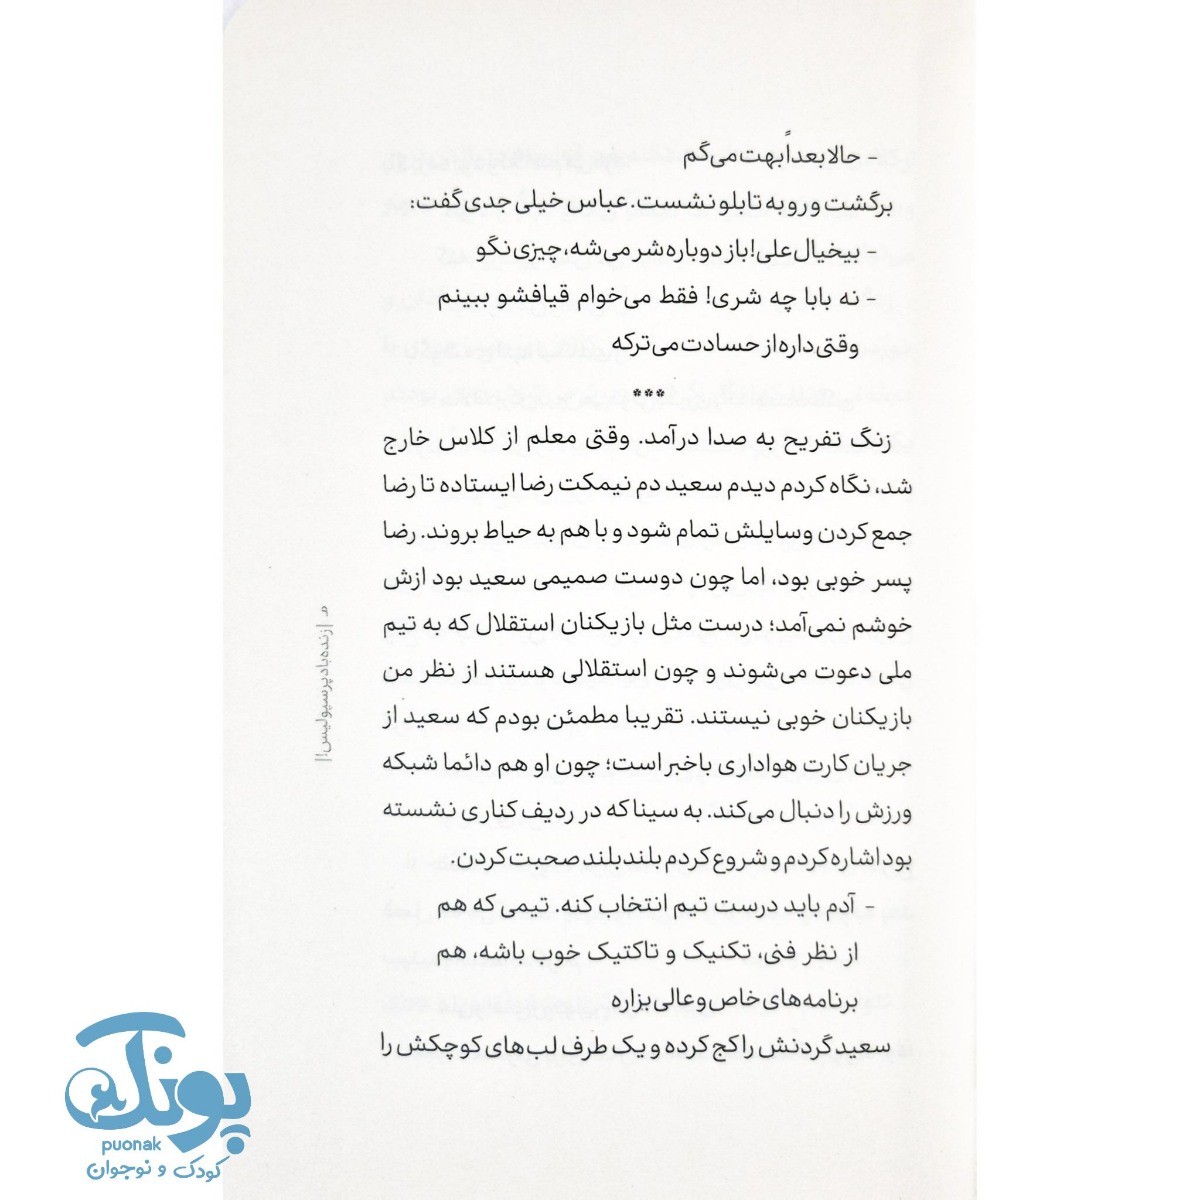 - حالا بعداً بهت می‌گم
برگشت و رو به تابلو نشست. عباس خیلی جدی گفت:
- بیخیال علی! باز دوباره شر می‌شه، چیزی نگو
- نه بابا چه شری! فقط می‌خوام قیافشو ببینم
وقتی داره از حسادت می‌ترکه
***
زنگ تفریح به صدا درآمد. وقتی معلم از کلاس خارج
شد، نگاه کردم دیدم سعید دم نیمکت رضا ایستاده تا رضا
جمع کردن وسایلش تمام شود و با هم به حیاط بروند. رضا
پسر خوبی بود، اما چون دوست صمیمی سعید بود ازش
خوشم نمی‌آمد؛ درست مثل بازیکنان استقلال که به تیم
ملی دعوت می‌شوند و چون استقلالی هستند از نظر من
بازیکنان خوبی نیستند. تقریبا مطمئن بودم که سعید از
جریان کارت هواداری باخبر است؛ چون او هم دائما شبکه
ورزش را دنبال می‌کند. به سینا که در ردیف کناری نشسته
بود اشاره کردم و شروع کردم بلند بلند صحبت کردن.
- آدم باید درست تیم انتخاب کنه. تیمی که هم
از نظر فنی، تکنیک و تاکتیک خوب باشه، هم
برنامه‌های خاص و عالی بزاره
سعید گردنش را کج کرده و یک طرف لب‌های کوچکش را
| زنده باد پرسپولیس! |
پونک
puonak
کودک و نوجوان